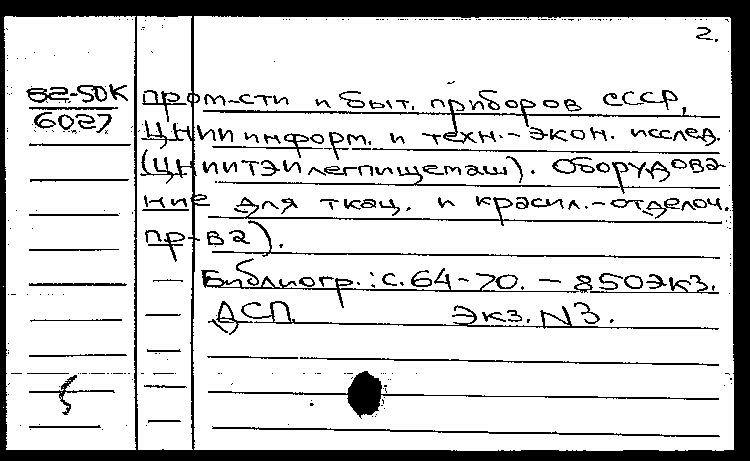 2.
82-50К
6027
пром-сти и быт. приборов СССР,
ЦНИИ информ. и техн.-экон. исслед.
(ЦНИИТЭИлегпищемаш). Оборудова-
ние для ткац. и красил.-отделоч.
пр-ва).
Библиогр.: с. 64-70. - 850экз.
ДСП Экз. N3.